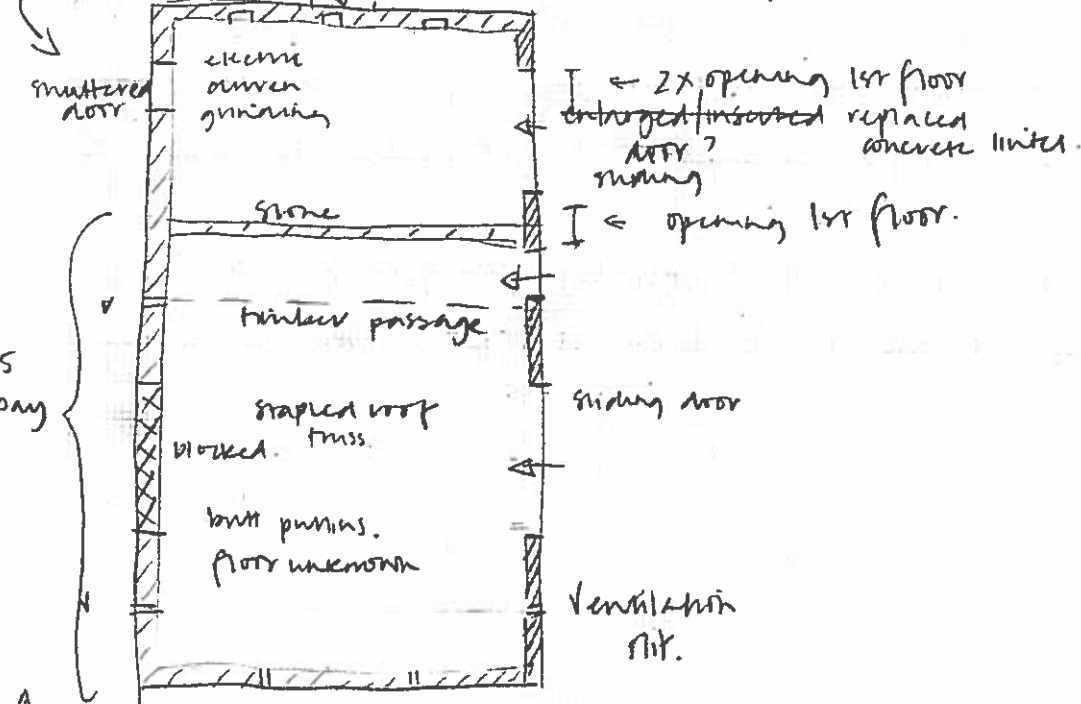 electric
driven
grinding
shuttered
door
← 2x opening 1st floor
enlarged/inserted replaced
door? concrete lintel.
sliding
stone
← opening 1st floor.
timber passage
5
bay
stapled roof
truss.
sliding door
blocked.
butt purlins.
floor unknown
Ventilation
slit.